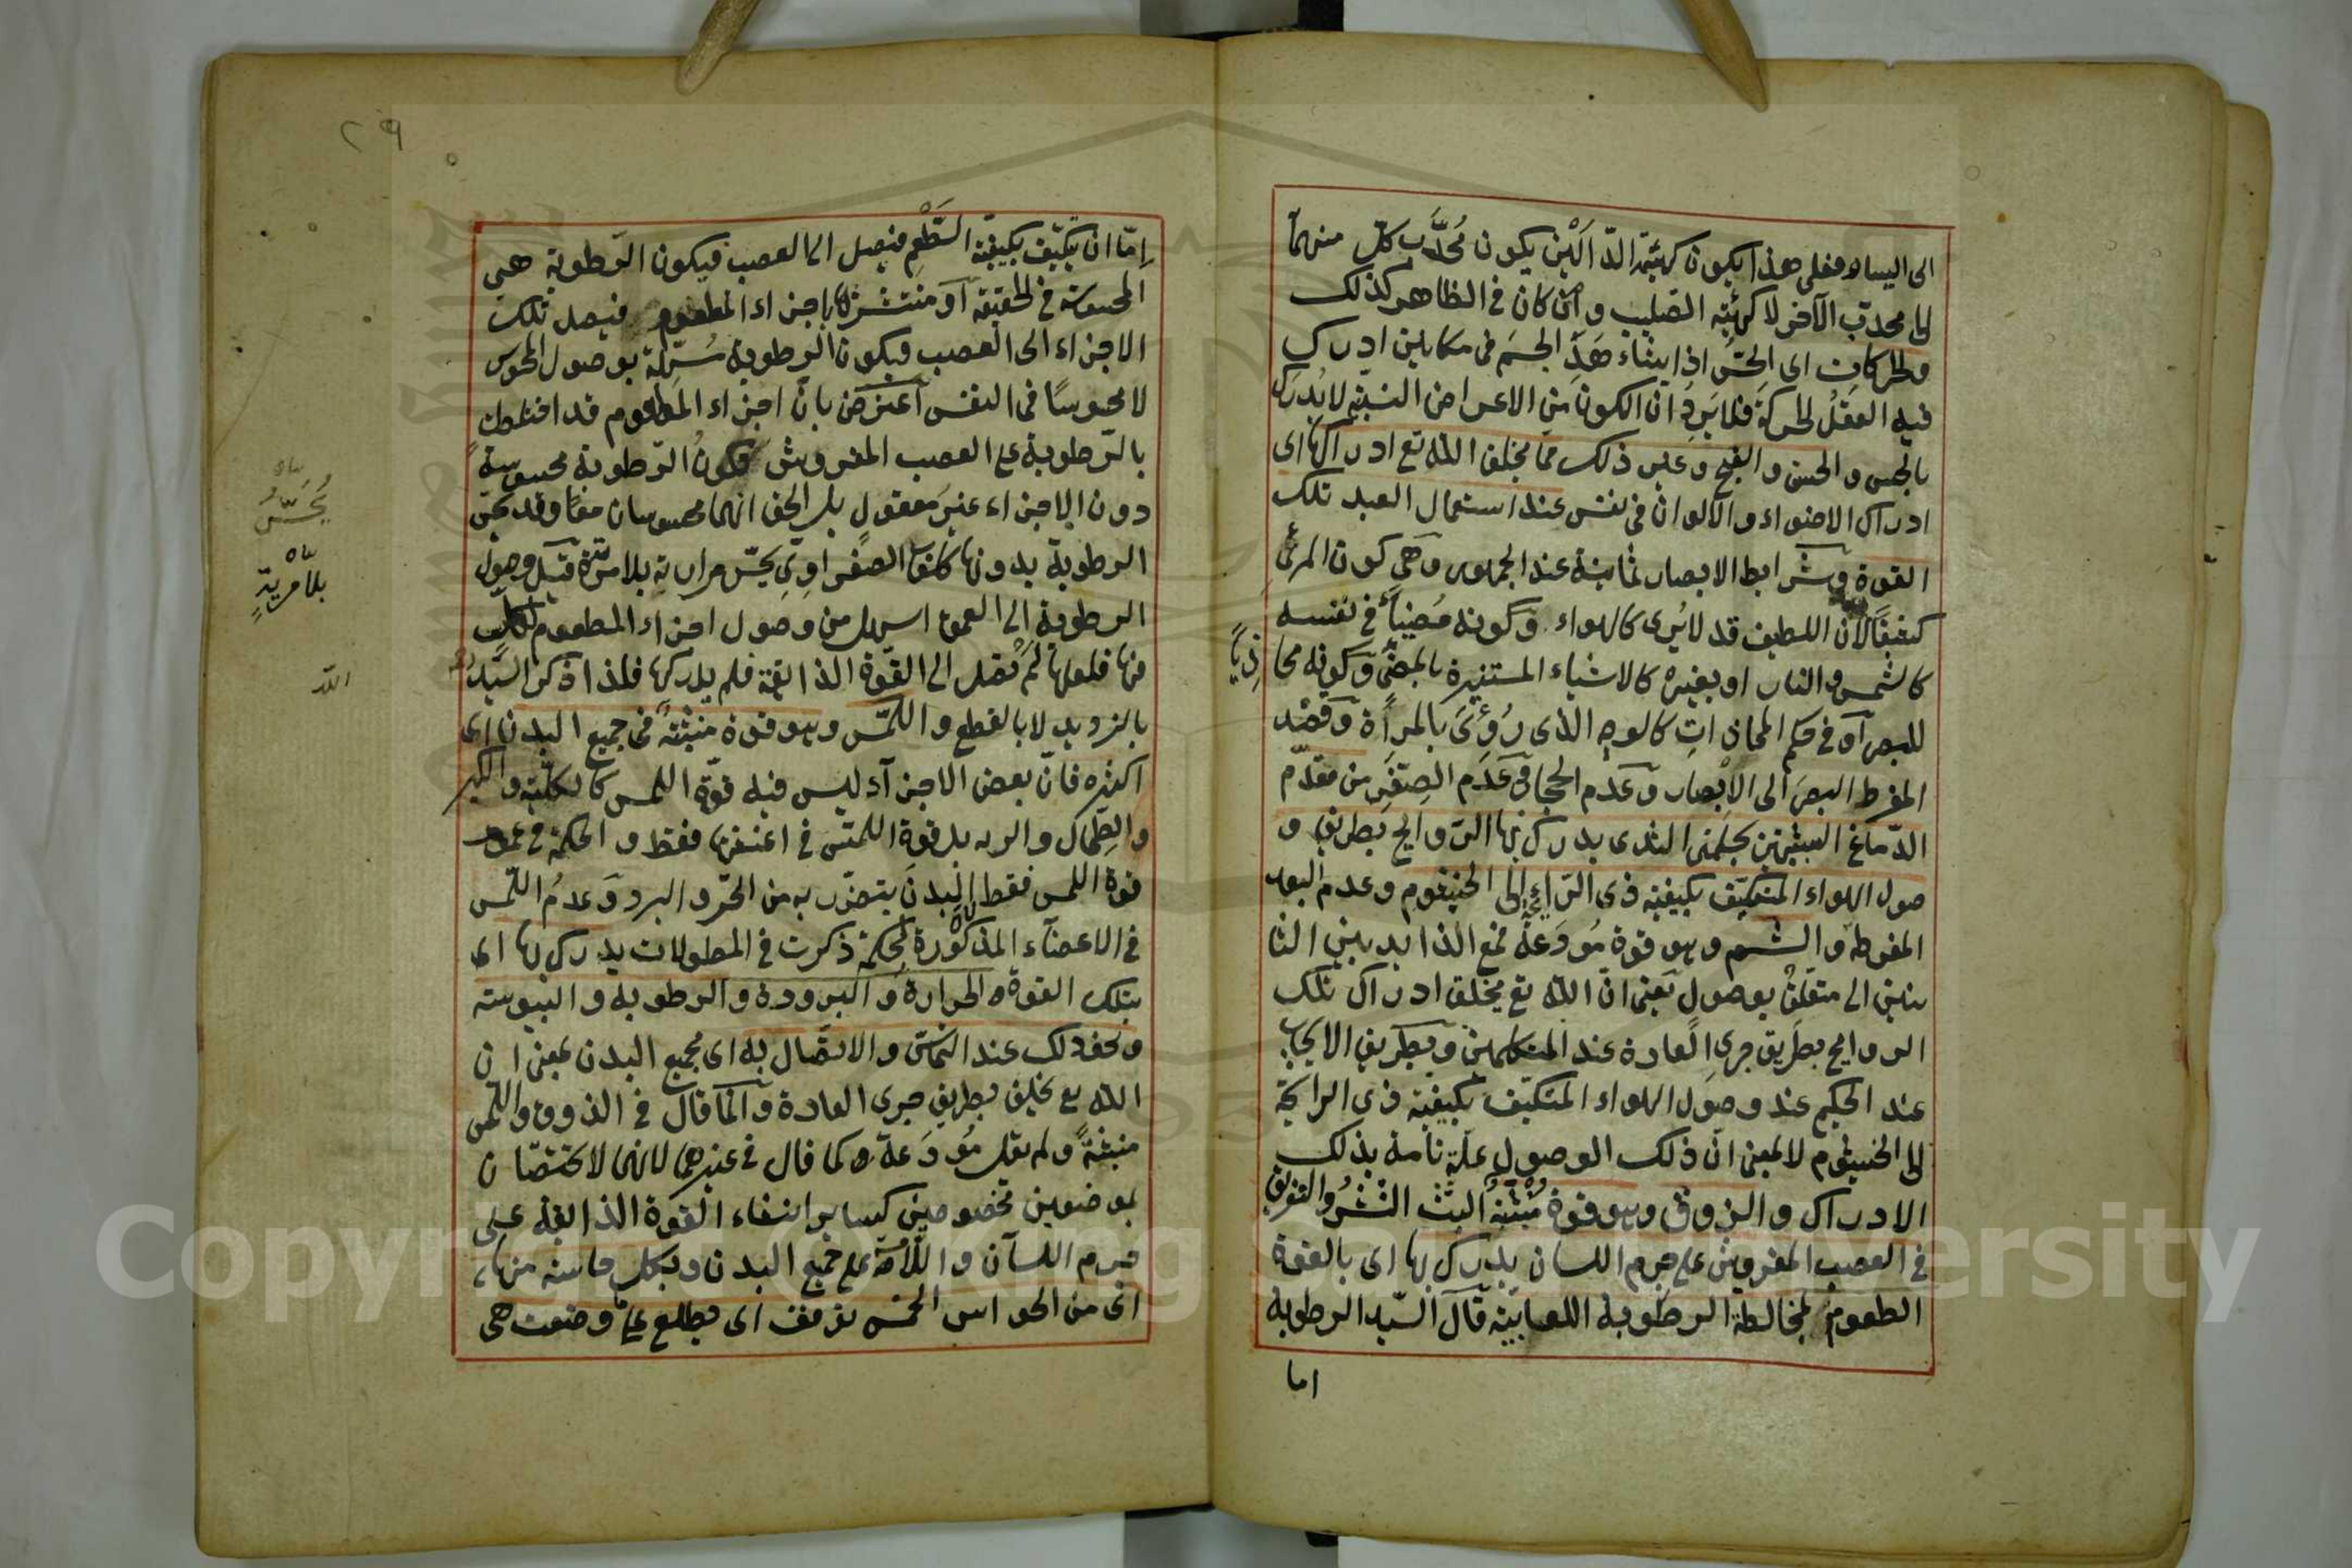 الى اليسار فعلى هذا يكون كهيئة الدالين يكون محدّب كلّ منهما
الى محدّب الآخر لا كهيئة الصليب وان كان في الظاهر كذلك
والحركات اى الحسّ اذا يشاء هذ الجسم في مكانين ادرك
فيه العقل الحركة فلا يَرِدُ ان الكون من الاعراض النسبية لا يُدرَك
بالحس والحسن والقبح وغير ذلك مما يخلق اللّه تع ادراكها اى
ادراك الاضواء والالوان في نفس عند استعمال العبد تلك
القوة وشرايط الابصار ثمانية عند الجمهور وهي كون المرئي
كثيفًا لان اللطيف قد لا يُرى كالهواء وكونه مُضيئًا في نفسه
كالشمس والنار او بغيره كالاشياء المستنيرة بالمضئ وكونه محا
ذيًا
للبصر او في حكم المحاذات كالوجه الذى رُؤىَ بالمرأة وقصد
البصر الى الابصار وعدم الحجاب وعدم الصغر
المفرط من مقدّم
الدّماغ الشبيهتين بحلمتى الثدى يدرك بها الروايح بطريق و
صول الهواء المتكيّف بكيفية ذى الرائحة الى الخيشوم وعدم البعد
المفرط والشم وهو قوة مُودَعة في الزائدتين النا
بتتين الى متعلق بوصول يعنى انّ اللّه تع يخلق ادراك تلك
الروايح بطريق جرى العادة عند المتكلمين وبطريق الايجاب
عند الحكيم عند وصول الهواء المتكيّف بكيفية ذى الرايحة
الى الخيشوم لا بمعنى انّ ذلك الوصول علّة تامة بذلك
الادراك والذوق وهو قوة مُنبثّةٌ البثّ النشرُ والتفريق
في العصب المفروش على جرم اللسان يدرك بها اى بالقوة
الطعوم بمخالطة الرطوبة اللعابيّة قال السّيد الرطوبة
اما
٢٩
إمّا ان يتكيّف بكيفية الطعم فيصل الى العصب فيكون الرّطوبة هى
المحسوسة في الحقيقة او منتشرة باجزاء المطعوم فيصل تلك
الاجزاء الى العصب فيكون الرطوبة مُسهّلة بوصول المحسوس
لا محسوسًا في النفس اعترض بانّ اجزاء المطعوم قد اختلطت
بالرّطوبة على العصب المفروش فكون الرّطوبة محسوسة
دون الاجزاء غير معقول بل الحق انهما محسوسان معًا وقد يحسّ
الرطوبة بدونها كالصفراوى يحسّ مرارته بلا مرية قبل وصول
الرطوبة الى العمق اسهل من وصول اجزاء المطعوم
منها فلعلها لَم تصل الى القوّة الذائقة فلم يدركها فلذا ذكر السّيد
بالترديد لا بالقطع واللّمس وهو قوة منبثةٌ في جميع البدن اى
اكثره فانّ بعض الاجزاء ليس فيه قوّة اللمس كالكلية والكبد
والطحال والريه بل قوة اللمس في اغشيتها فقط والحكمة في عدم
قوة اللمس فقط البدن يتضرّر به من الحرّ والبرد وعدمُ اللّمس
في الاعضآء المذكورة لحكمة ذكرت في المطولات يدرك بها اى
بتلك القوة الحرارة والبرودة والرطوبة واليبوسة
ونحو ذلك عند التماسّ والاتصال به اى بجميع البدن بمعنى ان
اللّه تع يخلق بطريق جرى العادة وانّما قال في الذوق واللّمس
منبثةٌ ولم يقل مُودَعة كما قال في غيرهما لانهما لا يختصّان
بموضعين مخصوصين كساير انتشاء القوة الذائقة على
جرم اللسان واللّامسة على جميع البدن وبكل حاسة منها
اى من الحواس الخمس يوقف اى يطلع على ما وضعت هى
يُحَسُّ
بلا مريةٍ
اللّه